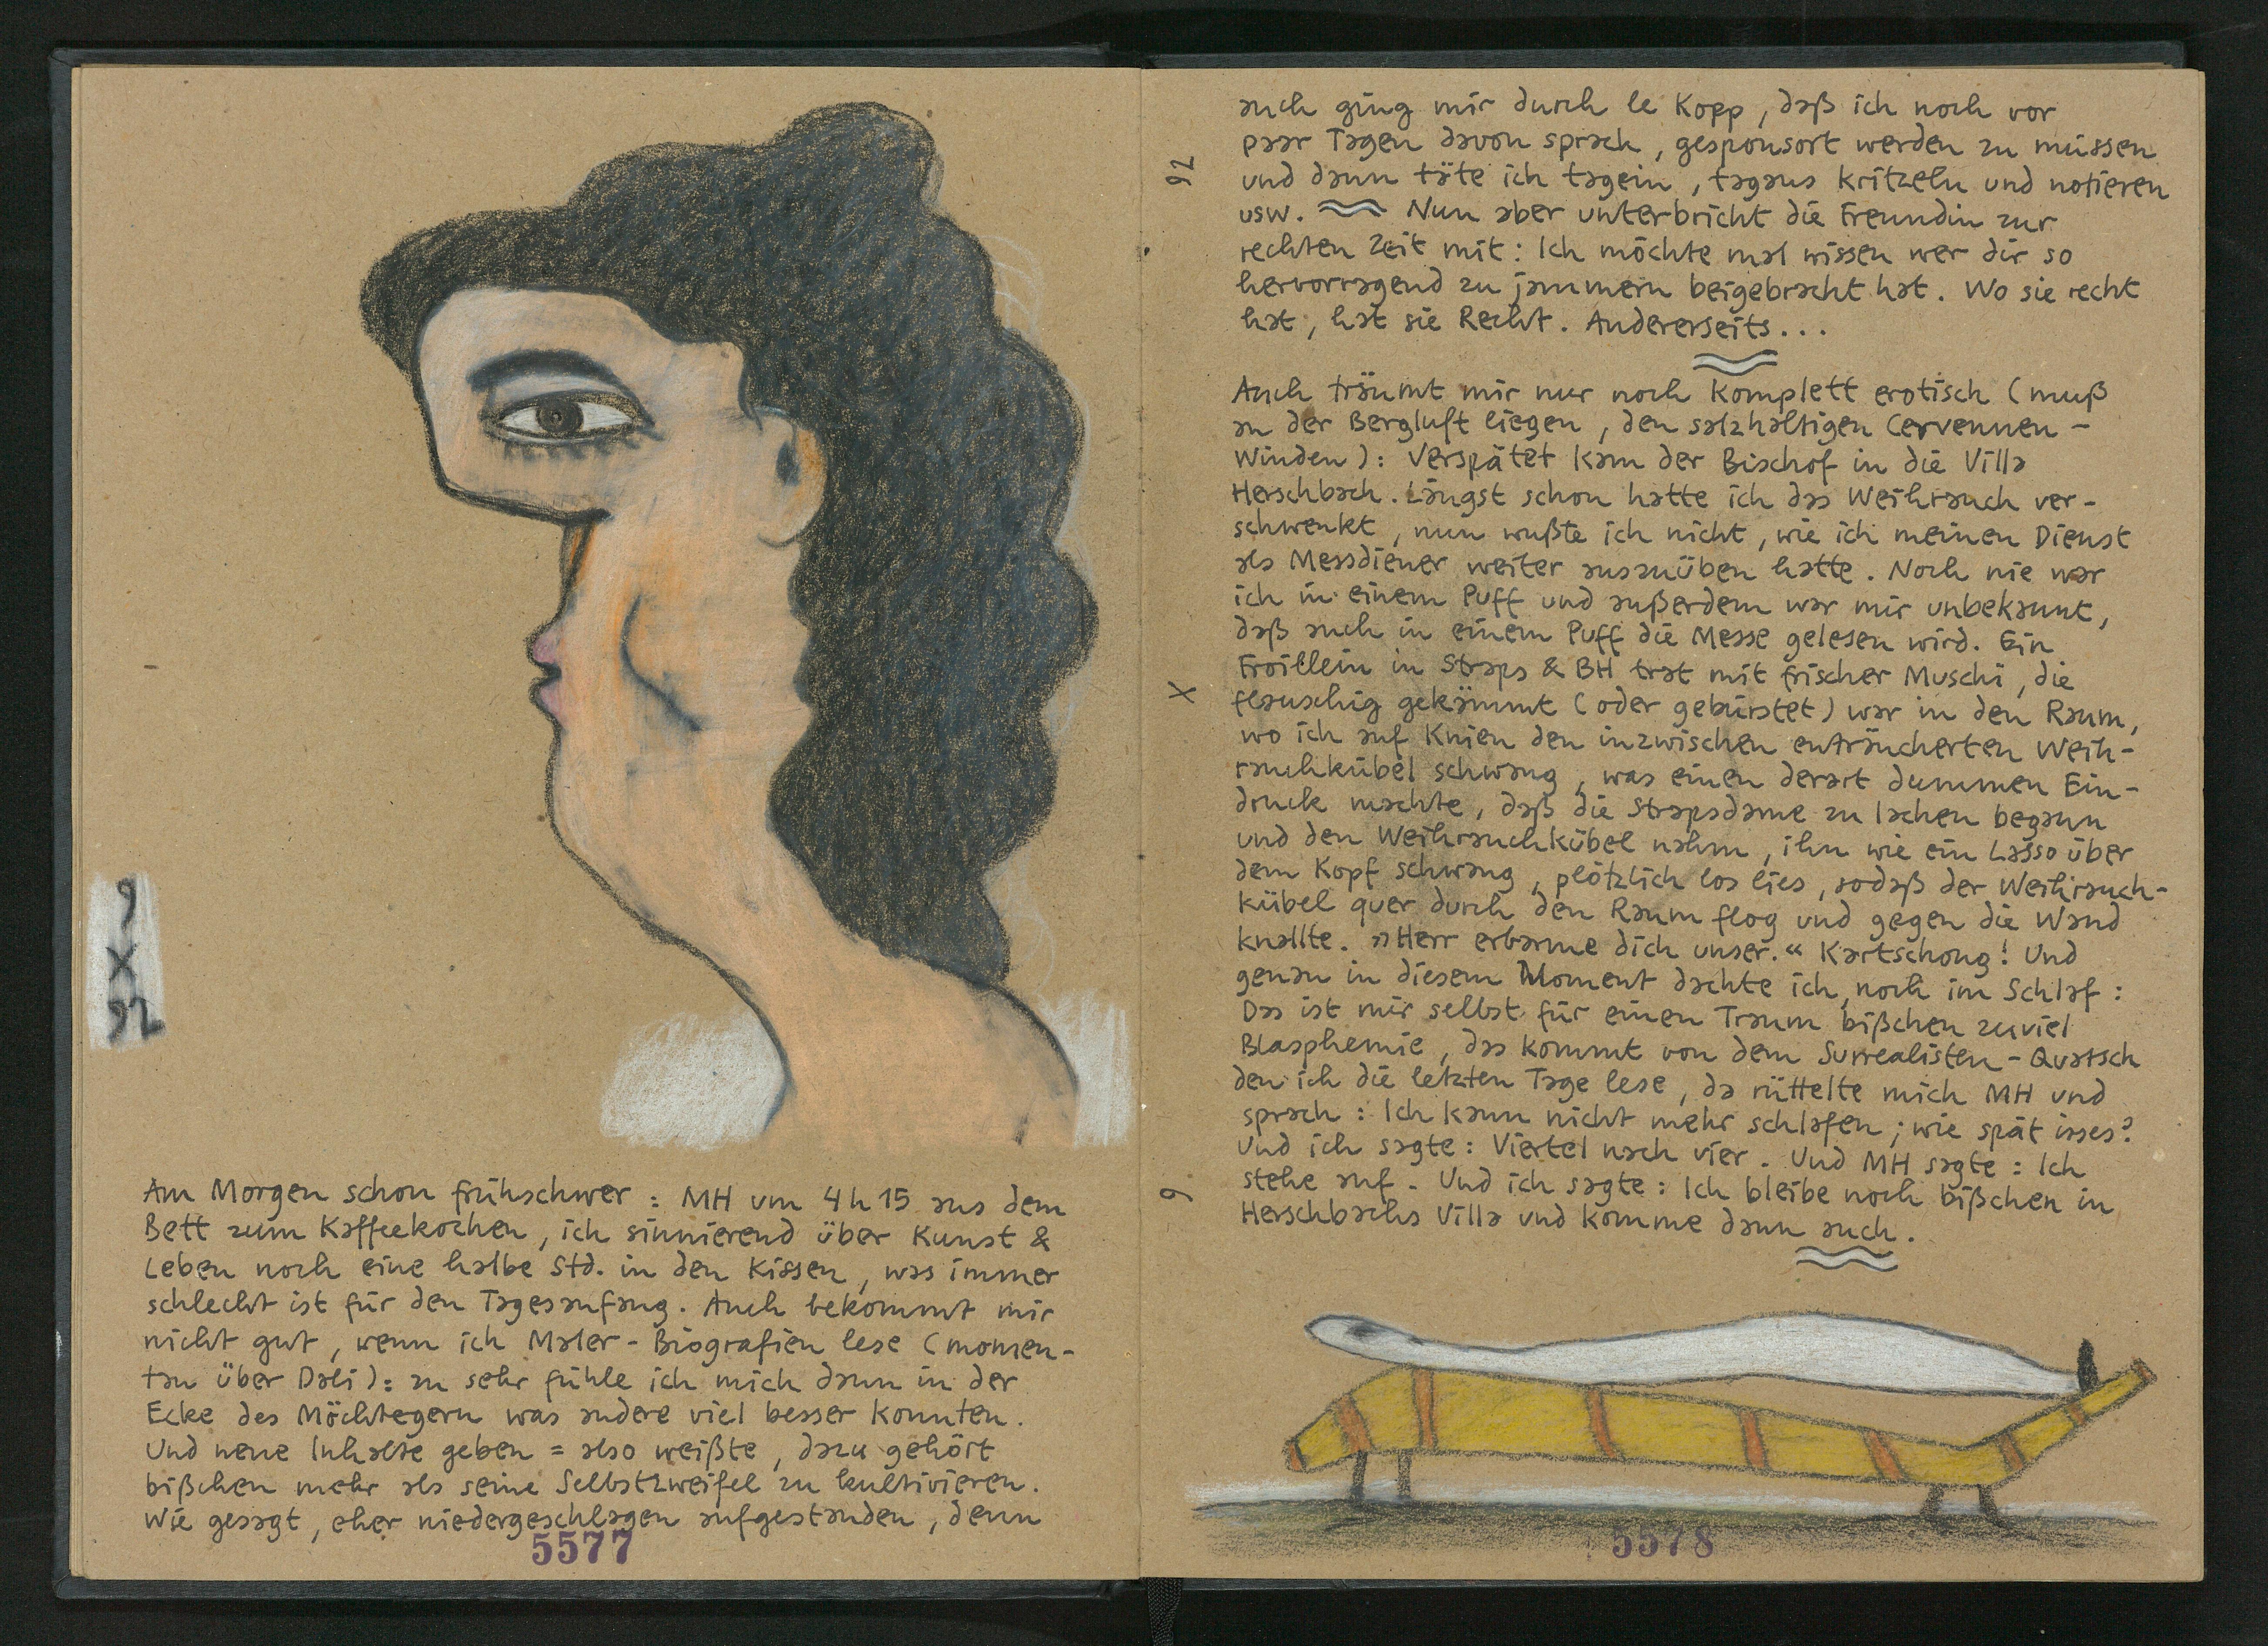 9
X
92
Am Morgen schon frühschwer : MH um 4 h 15 aus dem
Bett zum Kaffeekochen, ich sinnierend über Kunst &
Leben noch eine halbe Std. in den Kissen, was immer
schlecht ist für den Tagesanfang. Auch bekommt mir
nicht gut, wenn ich Maler-Biografien lese (momen-
tan über Dali): zu sehr fühle ich mich dann in der
Ecke des Möchtegern was andere viel besser konnten.
Und neue Inhalte geben = also weißte, dazu gehört
bißchen mehr als seine Selbstzweifel zu kultivieren.
Wie gesagt, eher niedergeschlagen aufgestanden, denn
5577
9 X 92
auch ging mir durch le Kopp, daß ich noch vor
paar Tagen davon sprach, gesponsort werden zu müssen
und dann täte ich tagein, tagaus kritzeln und notieren
usw. Nun aber unterbricht die Freundin zur
rechten Zeit mit : Ich möchte mal wissen wer dir so
hervorragend zu jammern beigebracht hat. Wo sie recht
hat, hat sie Recht. Andererseits...
Auch träumt mir nur noch komplett erotisch (muß
an der Bergluft liegen, den salzhaltigen Cervennen-
Winden): Verspätet kam der Bischof in die Villa
Herschbach. Längst schon hatte ich das Weihrauch ver-
schwenkt, nun wußte ich nicht, wie ich meinen Dienst
als Messdiener weiter auszuüben hatte. Noch nie war
ich in einem Puff und außerdem war mir unbekannt,
daß auch in einem Puff die Messe gelesen wird. Ein
Froillein in Straps & BH trat mit frischer Muschi, die
flauschig gekämmt (oder gebürstet) war in den Raum,
wo ich auf Knien den inzwischen enträucherten Weih-
rauchkübel schwang, was einen derart dummen Ein-
druck machte, daß die Strapsdame zu lachen begann
und den Weihrauchkübel nahm, ihn wie ein Lasso über
dem Kopf schwang, plötzlich los lies, sodaß der Weihrauch-
kübel quer durch den Raum flog und gegen die Wand
knallte. »Herr erbarme dich unser.« Kartschong! Und
genau in diesem Moment dachte ich, noch im Schlaf :
Das ist mir selbst für einen Traum bißchen zuviel
Blasphemie, das kommt von dem Surrealisten-Quatsch
den ich die letzten Tage lese, da rüttelte mich MH und
sprach : Ich kann nicht mehr schlafen ; wie spät isses?
Und ich sagte : Viertel nach vier. Und MH sagte : Ich
stehe auf. Und ich sagte : Ich bleibe noch bißchen in
Herschbachs Villa und komme dann auch.
5578